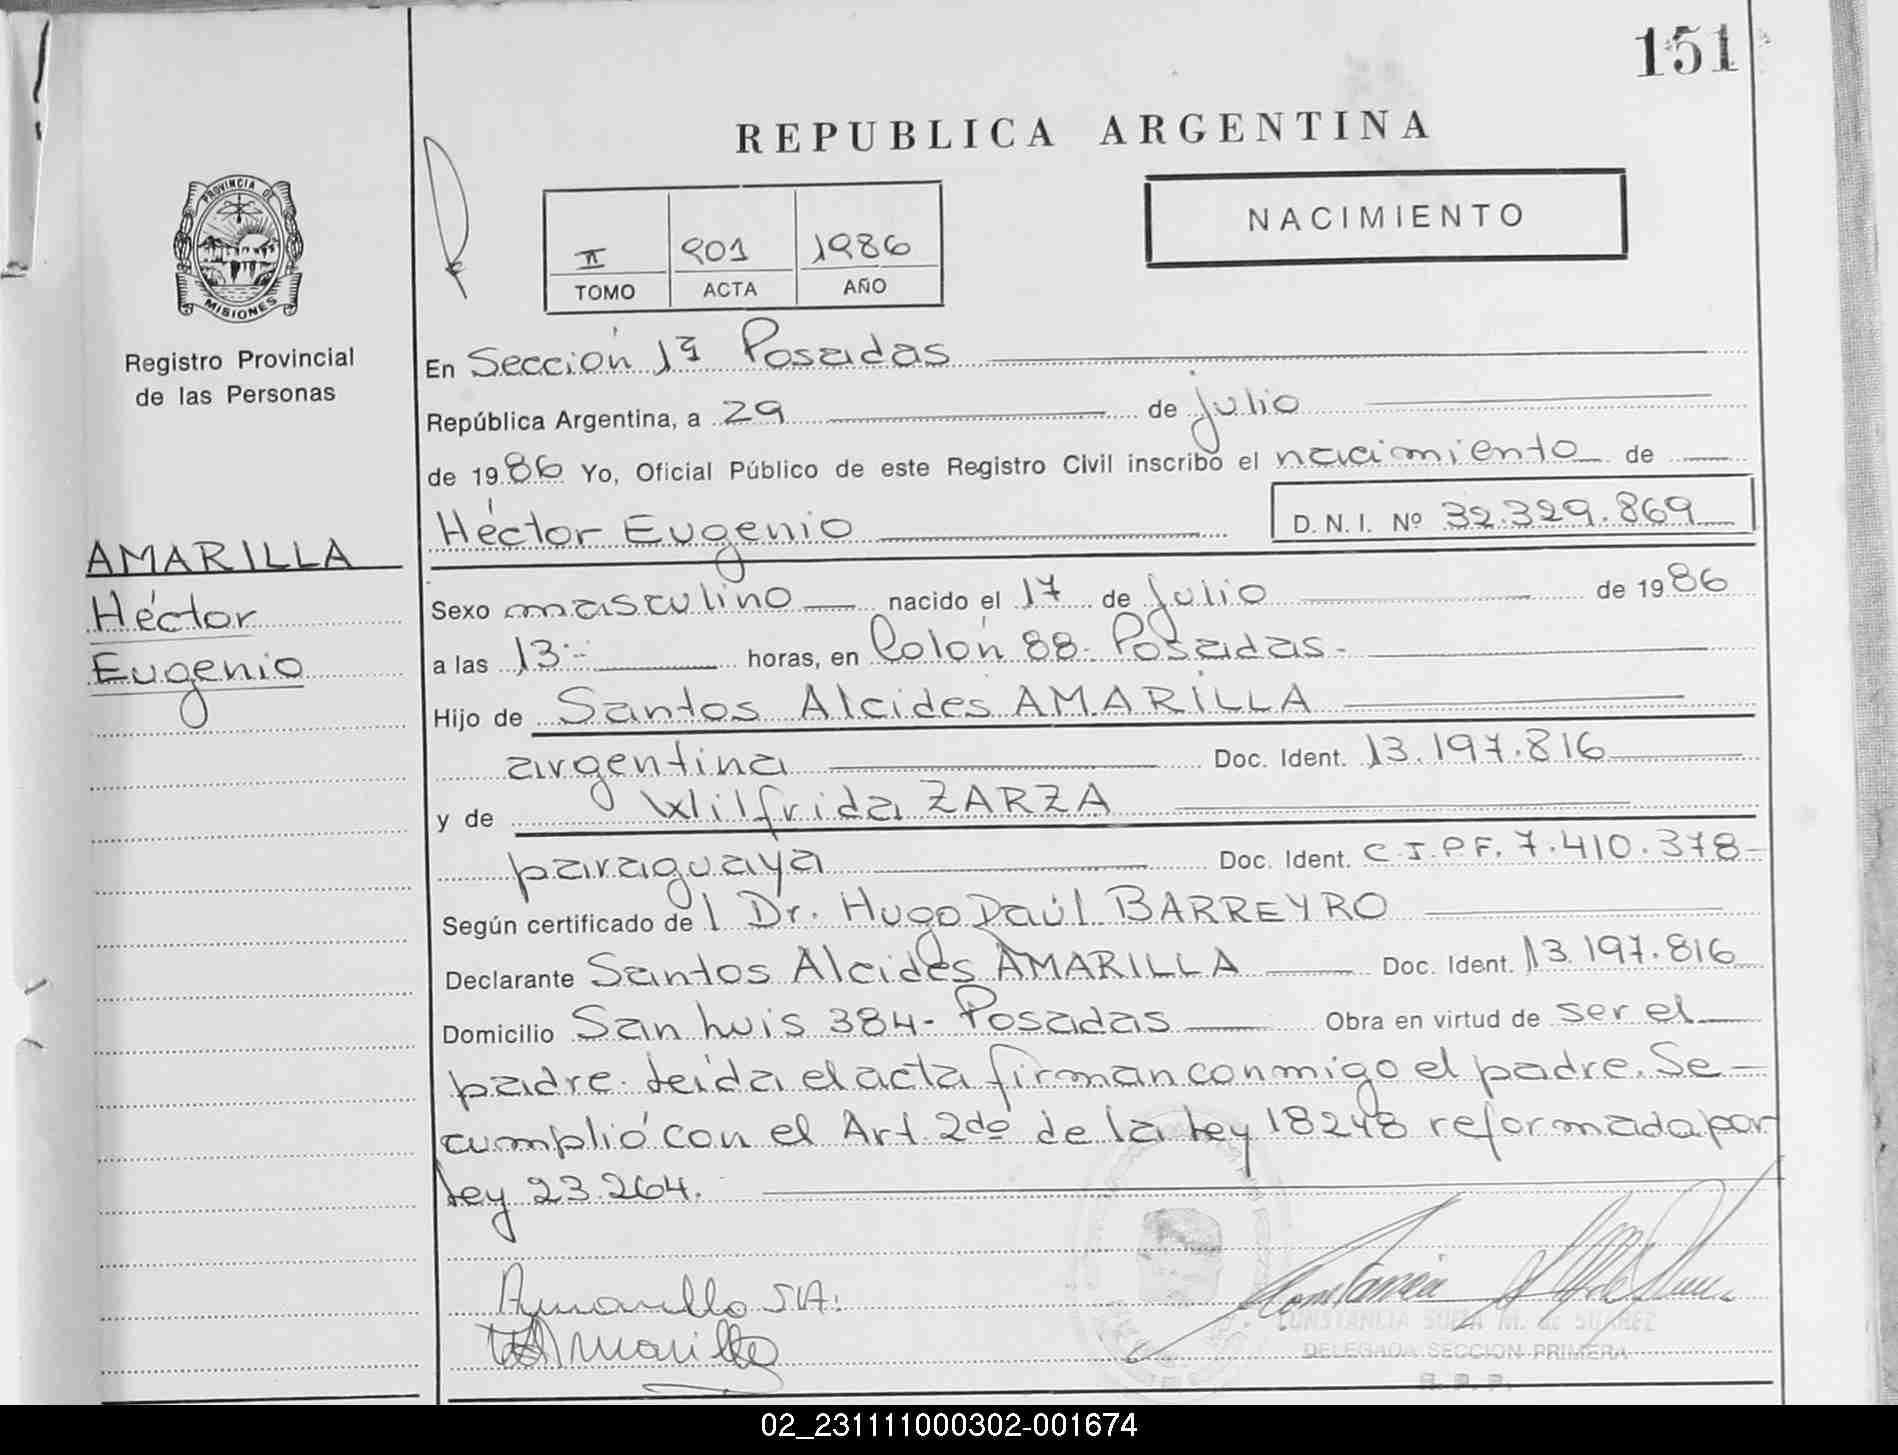 151
REPUBLICA ARGENTINA
PROVINCIA DE
MISIONES
Registro Provincial
de las Personas
NACIMIENTO
II 901 1986
TOMO ACTA AÑO
En Sección 1ª Posadas
República Argentina, a 29 de julio
de 1986 Yo, Oficial Público de este Registro Civil inscribo el nacimiento de
Héctor Eugenio D. N. I. Nº 32.329.869
AMARILLA
Héctor
Eugenio
Sexo masculino nacido el 17 de julio de 1986
a las 13:- horas, en Colón 88- Posadas.-
Hijo de Santos Alcides AMARILLA
argentina Doc. Ident. 13.197.816
y de Wilfrida ZARZA
paraguaya Doc. Ident. C.I.P.F. 7.410.378-
Según certificado de l Dr. Hugo Daúl BARREYRO
Declarante Santos Alcides AMARILLA Doc. Ident. 13.197.816
Domicilio San Luis 384- Posadas Obra en virtud de ser el
padre. Leída el acta firman conmigo el padre. Se-
cumplió con el Art. 2do de la Ley 18248 reformada por
Ley 23.264.
Amarilla S.A.
Amarilla
CONSTANCIA M. de SUAREZ
DELEGADA SECCION PRIMERA
R. P. P.
02_231111000302-001674